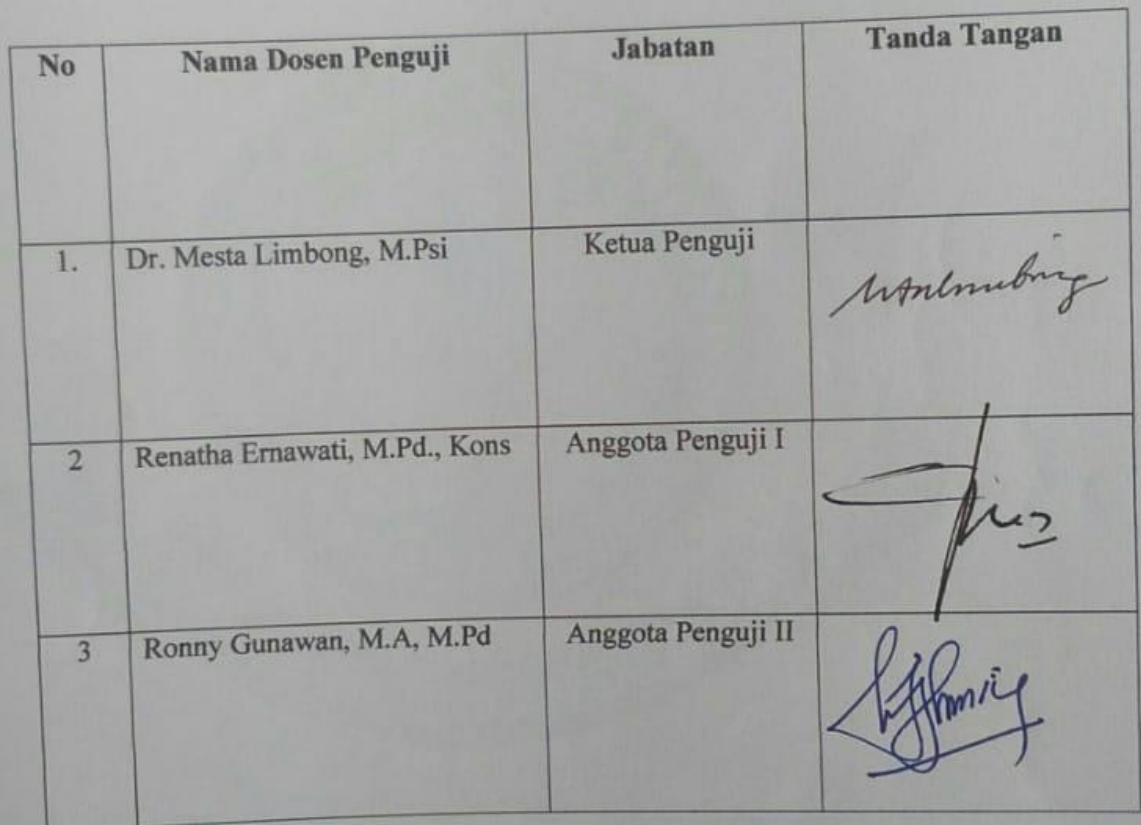 No Nama Dosen Penguji Jabatan Tanda Tangan
1. Dr. Mesta Limbong, M.Psi Ketua Penguji
2 Renatha Ernawati, M.Pd., Kons Anggota Penguji I
3 Ronny Gunawan, M.A, M.Pd Anggota Penguji II